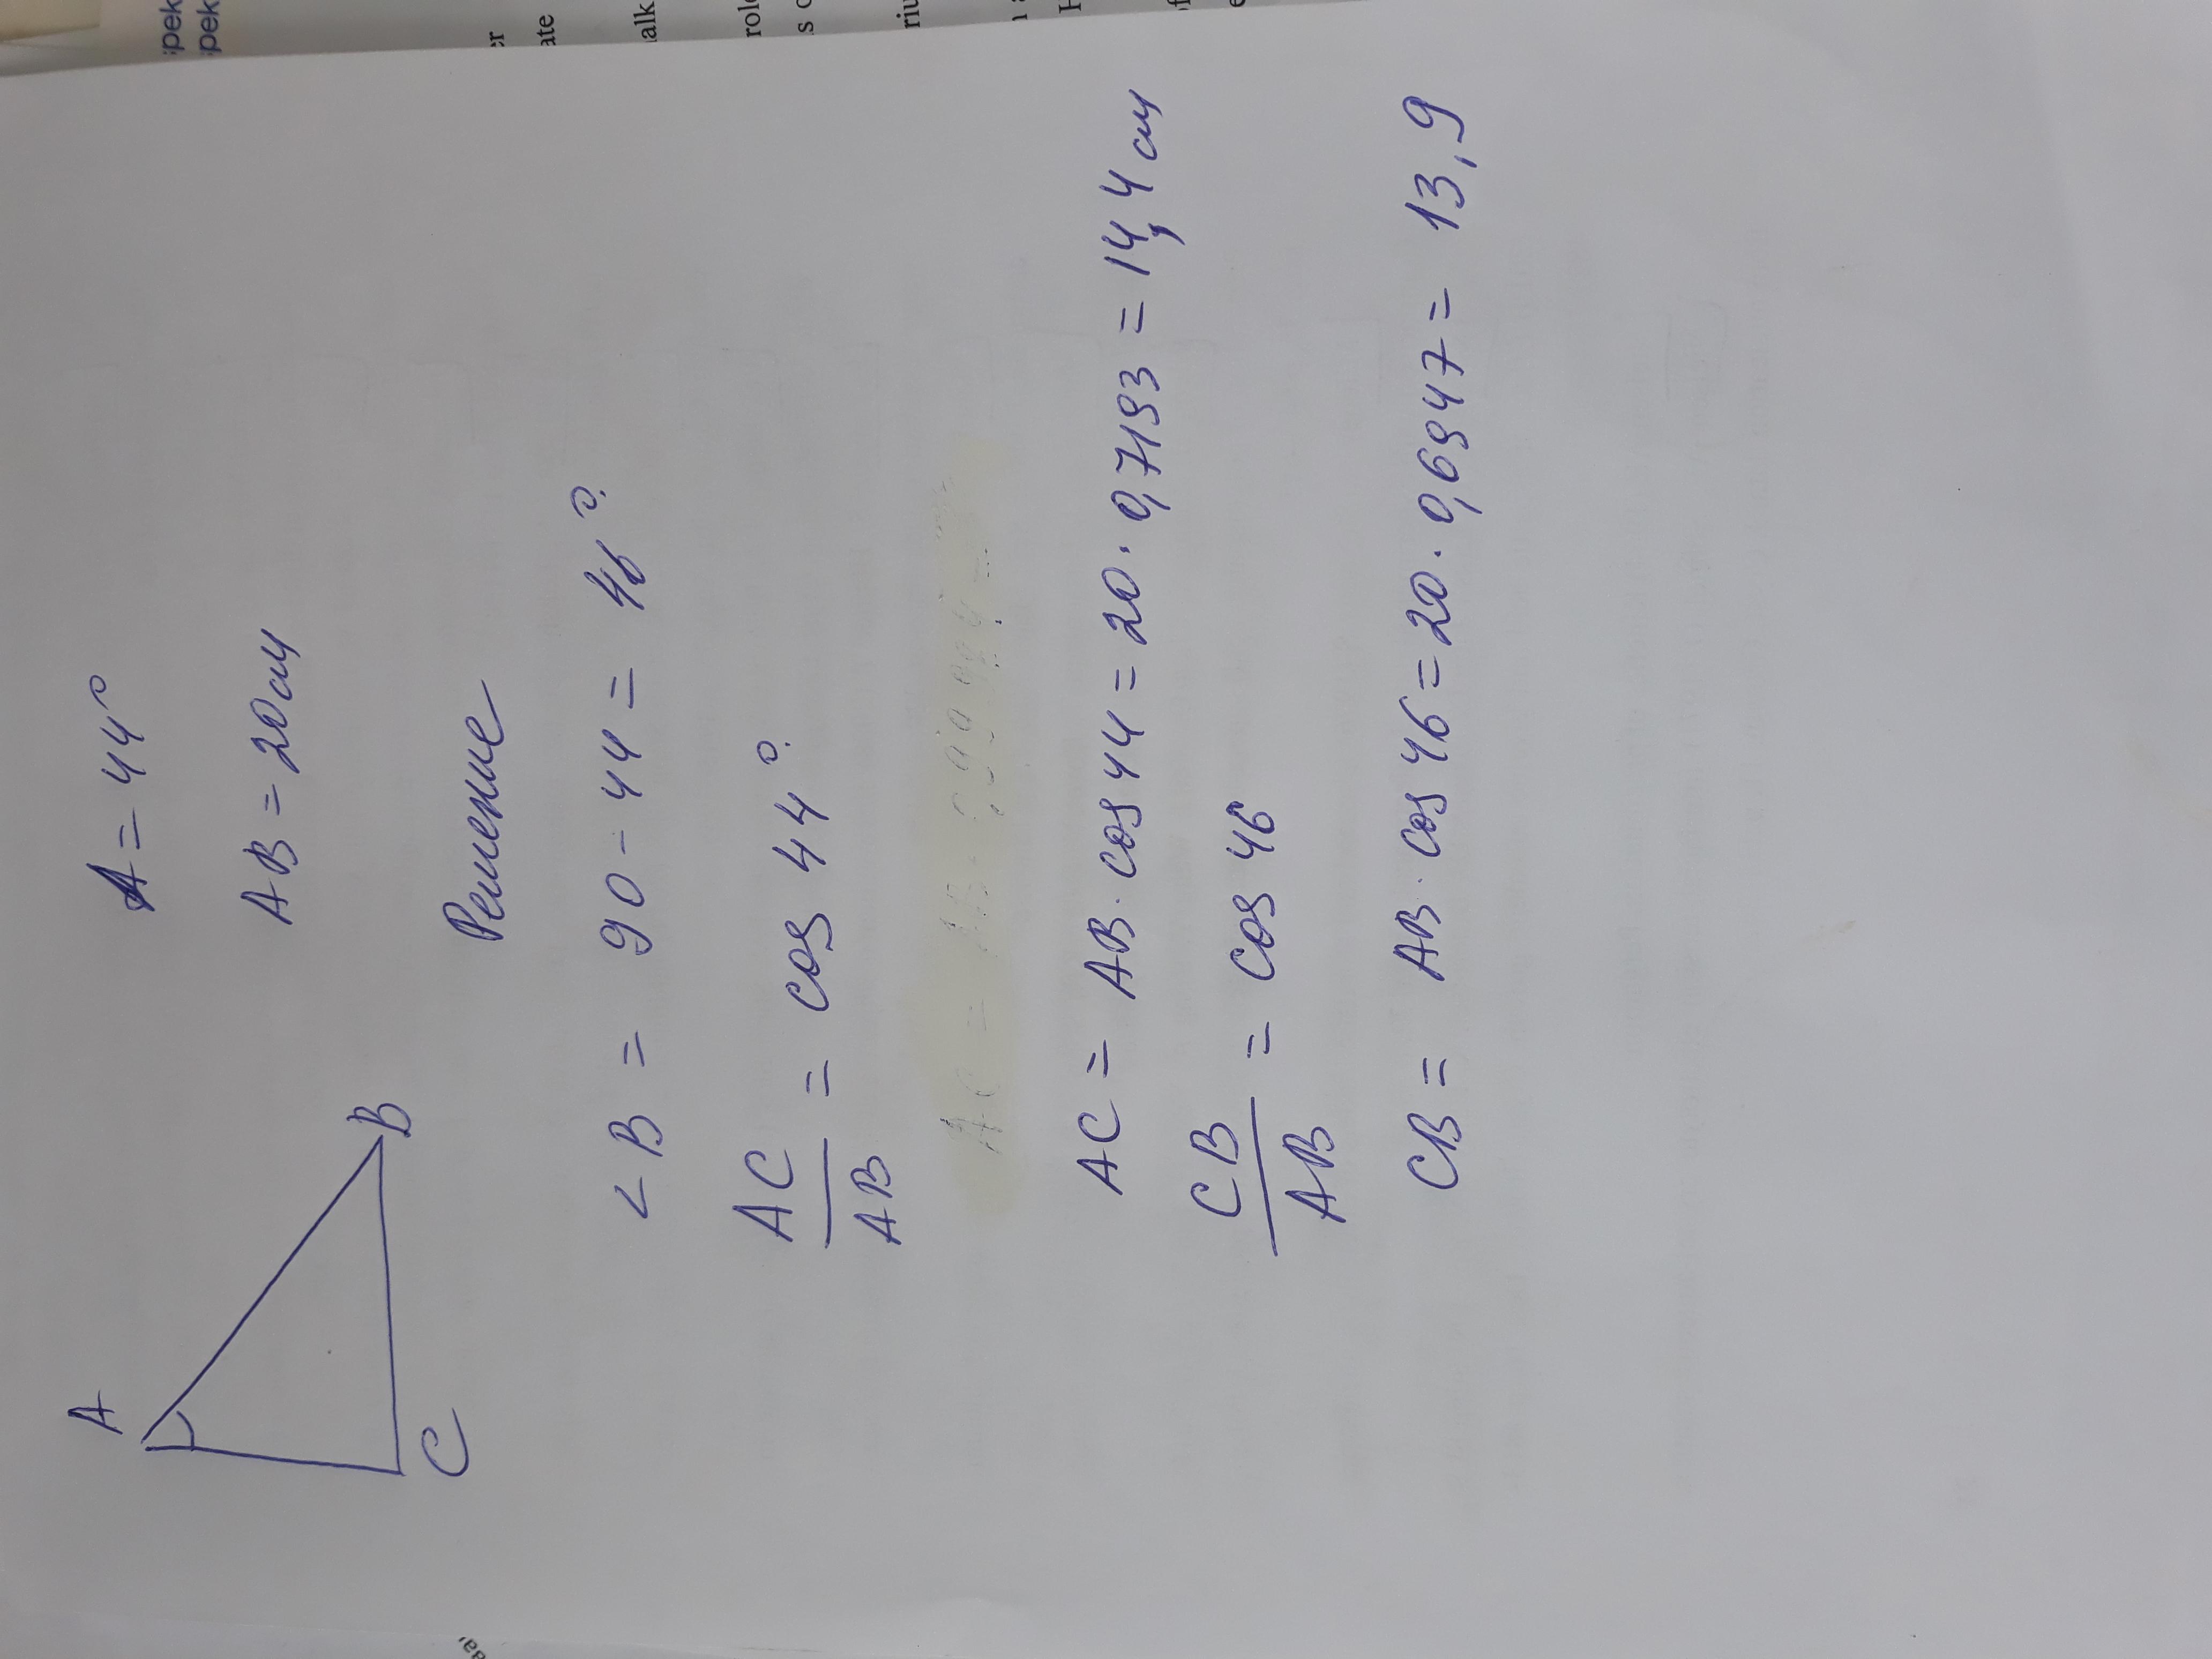 A
B
C
A = 44°
AB = 20см
Решение
∠B = 90 - 44 = 46°.
AC/AB = cos 44°.
AC = AB · cos 44 = 20 · 0,7193 = 14,4 см
CB/AB = cos 46
CB = AB · cos 46 = 20 · 0,6947 = 13,9
spek
spek
er
ate
alk